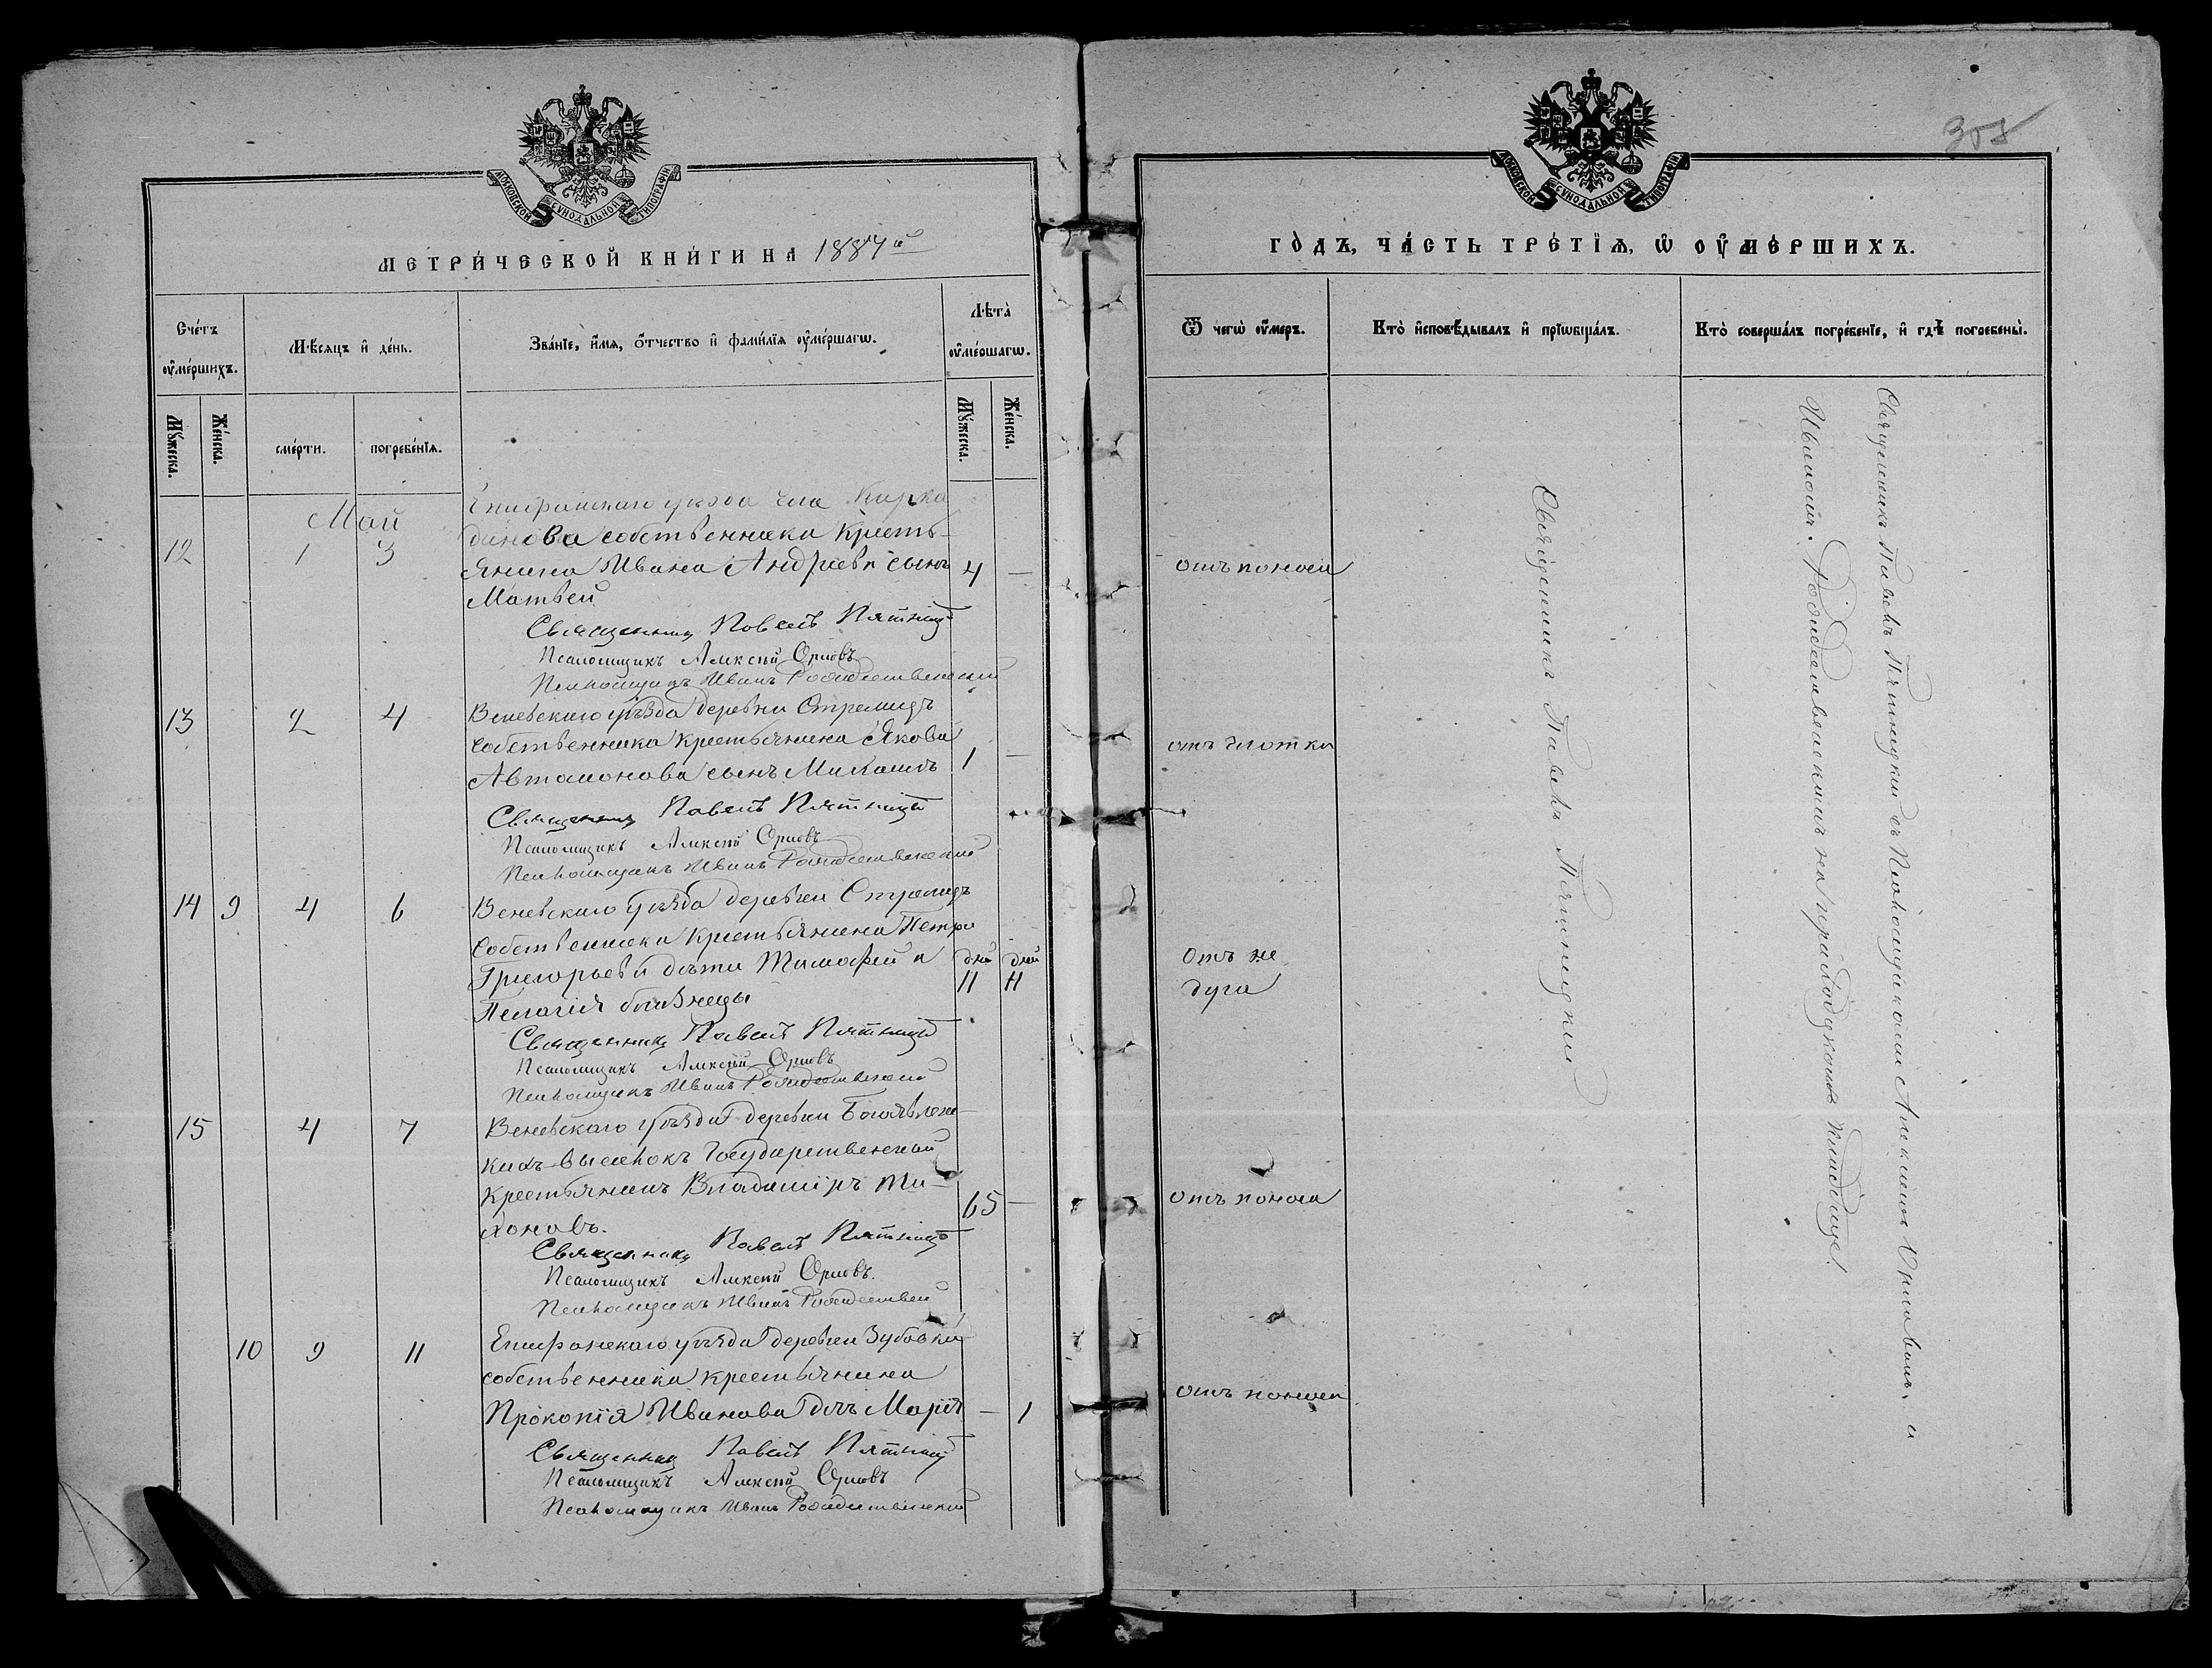 МОСКОВСКОЙ СѴНОДАЛЬНОЙ ТИПОГРАФІИ
МЕТРИ́ЧЕСКОЙ КНИ́ГИ НА 1884й
Сче́тъ ᲂу҆ме́ршихъ.
Мѣ́сяцъ и҆ де́нь.
Зва́нїе, и҆́мя, ѻ҆́тчество и҆ фами́лїя ᲂу҆ме́ршагѡ.
Лѣта̀ ᲂу҆ме́ршагѡ.
Мꙋ́жеска.
Же́нска.
сме́рти.
погребе́нїя.
Мꙋ́жеска.
Же́нска.
Май
12 1 3
Епифанскаго уѣзда села Кирка
динова собственника Кресть-
янина Ивана Андреева сынъ 4 —
Матвей
Священникъ Павелъ Пятниц
Псаломщикъ Алексѣй Орловъ
Псаломщикъ Иванъ Рождественскій
13 2 4
Веневскаго уѣзда деревни Стрелицъ
собственника крестьянина Якова
Автомонова сынъ 1 —
Священникъ Павелъ Пятницк
Псаломщикъ Алексѣй Орловъ
Псаломщикъ Иванъ Рождественский
14 9 4 6
Веневскаго уѣзда деревни Стрелицъ
собственника крестьянина Петра
Григорьева дѣти Тимофей и дней дней
Пелагія близнецы 11 11
Священникъ Павелъ Пятницк
Псаломщикъ Алексѣй Орловъ
Псаломщикъ Иванъ Рождественский
15 4 7
Веневскаго уѣзда деревни Богоявленс
кихъ-Выселокъ Государственный
крестьянинъ Владиміръ Ти-
хоновъ. 65 —
Священникъ Павелъ Пятницк
Псаломщикъ Алексѣй Орловъ.
Псаломщикъ Иванъ Рождествен
10 9 11
Епифанскаго уѣзда деревни Зубовки
собственника крестьянина
Прокопія Иванова дочь Марія — 1
Священникъ Павелъ Пятниц
Псаломщикъ Алексѣй Орловъ
Псаломщикъ Иванъ Рождественский
305
МОСКОВСКОЙ СѴНОДАЛЬНОЙ ТИПОГРАФІИ
ГО́ДЪ, ЧА́СТЬ ТРЕ́ТЇѦ, Ѡ҆ ОУ҆МЕ́РШИХЪ.
Ѿ чегѡ̀ ᲂу҆́меръ.
Кто̀ и҆сповѣ́дывалъ и҆ прїѡбща́лъ.
Кто̀ соверша́лъ погребе́нїе, и҆ гдѣ̀ погребены̀.
отъ поноса
отъ глотки
Отъ не
дуга
отъ поноса
отъ поноса
Священникъ Павелъ Пятницкий
Священникъ Павелъ Пятницкий съ Псаломщиками Алексѣемъ Орловымъ и
Иваномъ Рождественскимъ на приходскомъ кладбище.